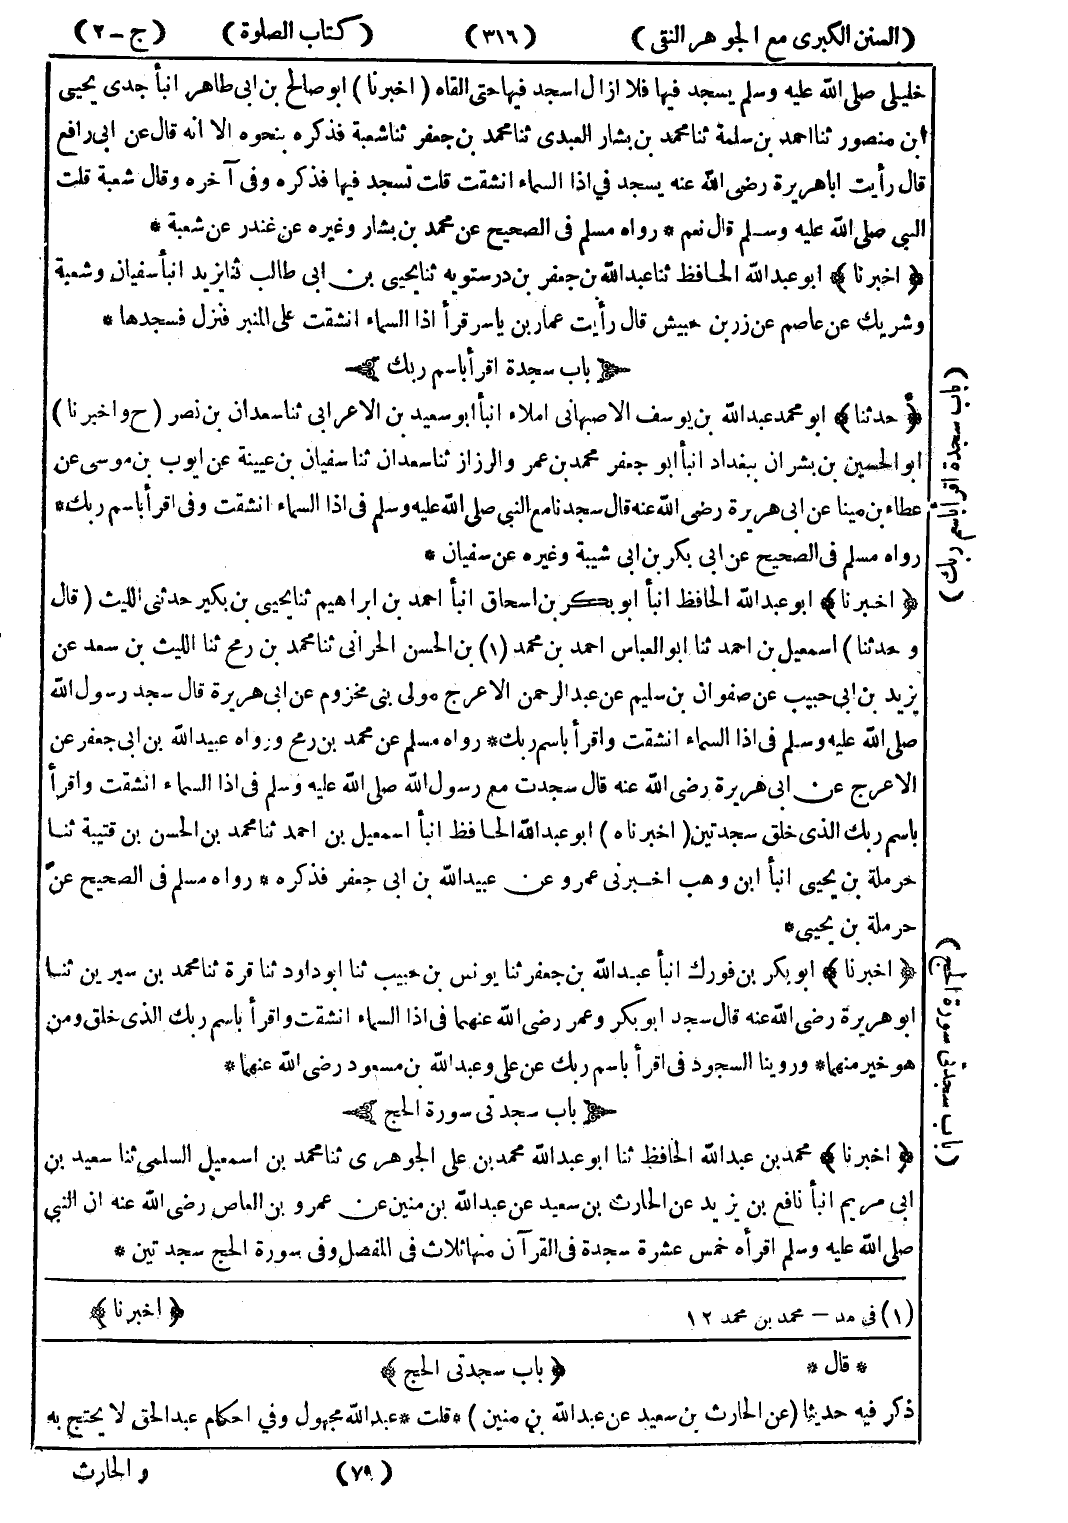 (السنن الكبرى مع الجوهر النقى) (٣١٦) (كتاب الصلوة) (ج - ٢)
خليلى صلى الله عليه وسلم يسجد فيها فلا ازال اسجد فيها حتى القاه (اخبرنا) ابو صالح بن ابى طاهر انبأ جدى يحيى
ابن منصور ثنا احمد بن سلمة ثنا محمد بن بشار العبدى ثنا محمد بن جعفر ثنا شعبة فذكره بنحوه الا انه قال عن ابى رافع
قال رأيت ابا هريرة رضى الله عنه يسجد فى اذا السماء انشقت قلت تسجد فيها فذكره وفى آخره وقال شعبة قلت
النبي صلى الله عليه وسلم قال نعم * رواه مسلم فى الصحيح عن محمد بن بشار وغيره عن غندر عن شعبة *
﴿اخبرنا﴾ ابو عبد الله الحافظ ثنا عبد الله بن جعفر بن درستويه ثنا يحيى بن ابى طالب ثنا يزيد انبأ سفيان وشعبة
وشريك عن عاصم عن زر بن حبيش قال رأيت عمار بن ياسر قرأ اذا السماء انشقت على المنبر فنزل فسجدها *
﴿باب سجدة اقرأ باسم ربك﴾
﴿حدثنا﴾ ابو محمد عبد الله بن يوسف الاصبهانى املاء انبأ ابو سعيد بن الاعرابى ثنا سعدان بن نصر (ح واخبرنا)
ابو الحسين بن بشران ببغداد انبأ ابو جعفر محمد بن عمرو الرزاز ثنا سعدان ثنا سفيان بن عيينة عن ايوب بن موسى عن
عطاء بن مينا عن ابى هريرة رضى الله عنه قال سجدنا مع النبي صلى الله عليه وسلم فى اذا السماء انشقت وفى اقرأ باسم ربك *
رواه مسلم فى الصحيح عن ابى بكر بن ابى شيبة وغيره عن سفيان *
﴿اخبرنا﴾ ابو عبد الله الحافظ انبأ ابو بكر بن اسحاق انبأ احمد بن ابراهيم ثنا يحيى بن بكير حدثنى الليث (قال
و حدثنا) اسمعيل بن احمد ثنا ابو العباس احمد بن محمد (١) بن الحسن الحرانى ثنا محمد بن رمح ثنا الليث بن سعد عن
يزيد بن ابى حبيب عن صفوان بن سليم عن عبد الرحمن الاعرج مولى بنى مخزوم عن ابى هريرة قال سجد رسول الله
صلى الله عليه وسلم فى اذا السماء انشقت واقرأ باسم ربك * رواه مسلم عن محمد بن رمح ورواه عبيد الله بن ابى جعفر عن
الاعرج عن ابى هريرة رضى الله عنه قال سجدت مع رسول الله صلى الله عليه وسلم فى اذا السماء انشقت واقرأ
باسم ربك الذى خلق سجدتين (اخبرناه) ابو عبد الله الحافظ انبأ اسمعيل بن احمد ثنا محمد بن الحسن بن قتيبة ثنا
حرملة بن يحيى انبأ ابن وهب اخبرنى عمرو عن عبيد الله بن ابى جعفر فذكره * رواه مسلم فى الصحيح عن
حرملة بن يحيى *
﴿اخبرنا﴾ ابو بكر بن فورك انبأ عبد الله بن جعفر ثنا يونس بن حبيب ثنا ابو داود ثنا قرة ثنا محمد بن سيرين ثنا
ابو هريرة رضى الله عنه قال سجد ابو بكر وعمر رضى الله عنهما فى اذا السماء انشقت واقرأ باسم ربك الذى خلق ومن
هو خير منهما * وروينا السجود فى اقرأ باسم ربك عن على وعبد الله بن مسعود رضى الله عنهما *
﴿باب سجدتى سورة الحج﴾
﴿اخبرنا﴾ محمد بن عبد الله الحافظ ثنا ابو عبد الله محمد بن على الجوهرى ثنا محمد بن اسمعيل السلمى ثنا سعيد بن
ابى مريم انبأ نافع بن يزيد عن الحارث بن سعيد عن عبد الله بن منين عن عمرو بن العاص رضى الله عنه ان النبي
صلى الله عليه وسلم اقرأه خمس عشرة سجدة فى القرآن منها ثلاث فى المفصل وفى سورة الحج سجدتين *
﴿اخبرنا﴾
(١) فى مد - محمد بن محمد ١٢
* قال * ﴿باب سجدتى الحج﴾
ذكر فيه حديثا (عن الحارث بن سعيد عن عبد الله بن منين) * قلت * عبد الله مجهول وفي احكام عبد الحق لا يحتج به
(٧٩) والحارث
(باب سجدة اقرأ باسم ربك)
(باب سجدتى سورة الحج)